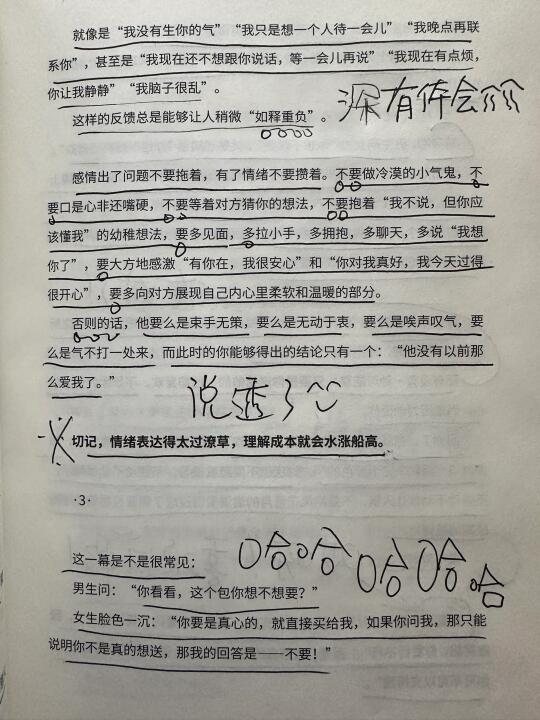 就像是“我没有生你的气”“我只是想一个人待一会儿”“我晚点再联
系你”，甚至是“我现在还不想跟你说话，等一会儿再说”“我现在有点烦，
你让我静静”“我脑子很乱”。
深有体会
这样的反馈总是能够让人稍微“如释重负”。
感情出了问题不要拖着，有了情绪不要攒着。不要做冷漠的小气鬼，不
要口是心非还嘴硬，不要等着对方猜你的想法，不要抱着“我不说，但你应
该懂我”的幼稚想法，要多见面，多拉小手，多拥抱，多聊天，多说“我想
你了”，要大方地感激“有你在，我很安心”和“你对我真好，我今天过得
很开心”，要多向对方展现自己内心里柔软和温暖的部分。
否则的话，他要么是束手无策，要么是无动于衷，要么是唉声叹气，要
么是气不打一处来，而此时的你能够得出的结论只有一个：“他没有以前那
么爱我了。”
说透了
切记，情绪表达得太过潦草，理解成本就会水涨船高。
·3·
哈哈哈哈哈
这一幕是不是很常见：
男生问：“你看看，这个包你想不想要？”
女生脸色一沉：“你要是真心的，就直接买给我，如果你问我，那只能
说明你不是真的想送，那我的回答是——不要！”